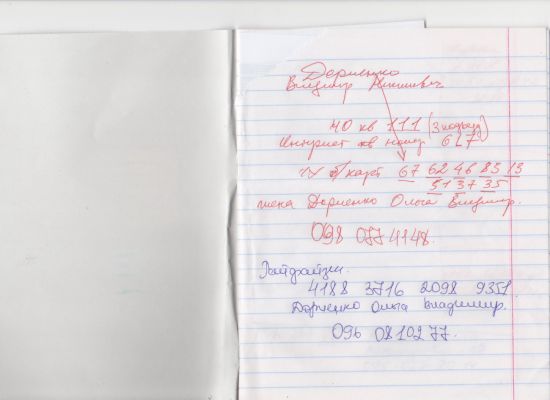 Дориенко
Владимир
40 кв 111 (3 подъезд)
Интернет кв номер 627
б/карт 67 62 46 83 13
51 37 35
жена Дориенко Ольга Владимир.
098 077 41 48.
Райфайзен.
4188 3716 2098 9351
Дориенко Ольга Владимир.
096 08 102 77.